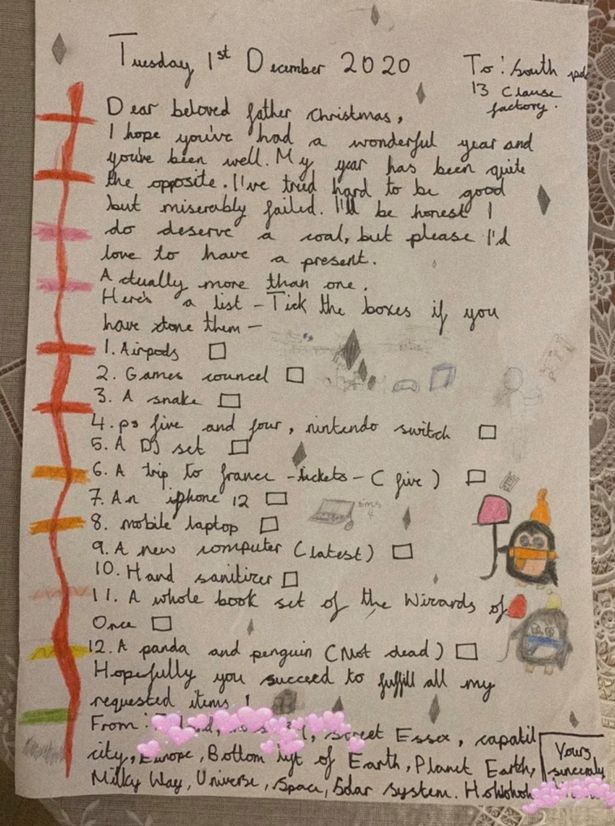 Tuesday 1st December 2020
To: South
13 Clause
factory.
Dear beloved father christmas,
I hope you've had a wonderful year and
you've been well. My year has been quite
the opposite. I've tried hard to be good
but miserably failed. I'll be honest I
do deserve a coal, but please I'd
love to have a present.
Actually more than one.
Here's a list - Tick the boxes if you
have stone them -
1. Airpods
2. Games councel
3. A snake
4. ps five and four, nintendo switch
5. A DJ set
6. A trip to france - tickets - ( five )
7. An iphone 12
8. mobile laptop
sims
4
9. A new computer (latest)
10. Hand sanitizer
11. A whole book set of the Wizards of
Once
12. A panda and penguin (Not dead)
Hopefully you succeed to fulfill all my
requested items !
From: street Essex, capatil
city, Europe, Bottom of Earth, Planet Earth,
Milky Way, Universe, Space, Solar system. Hohohoh
Yours
sincerely